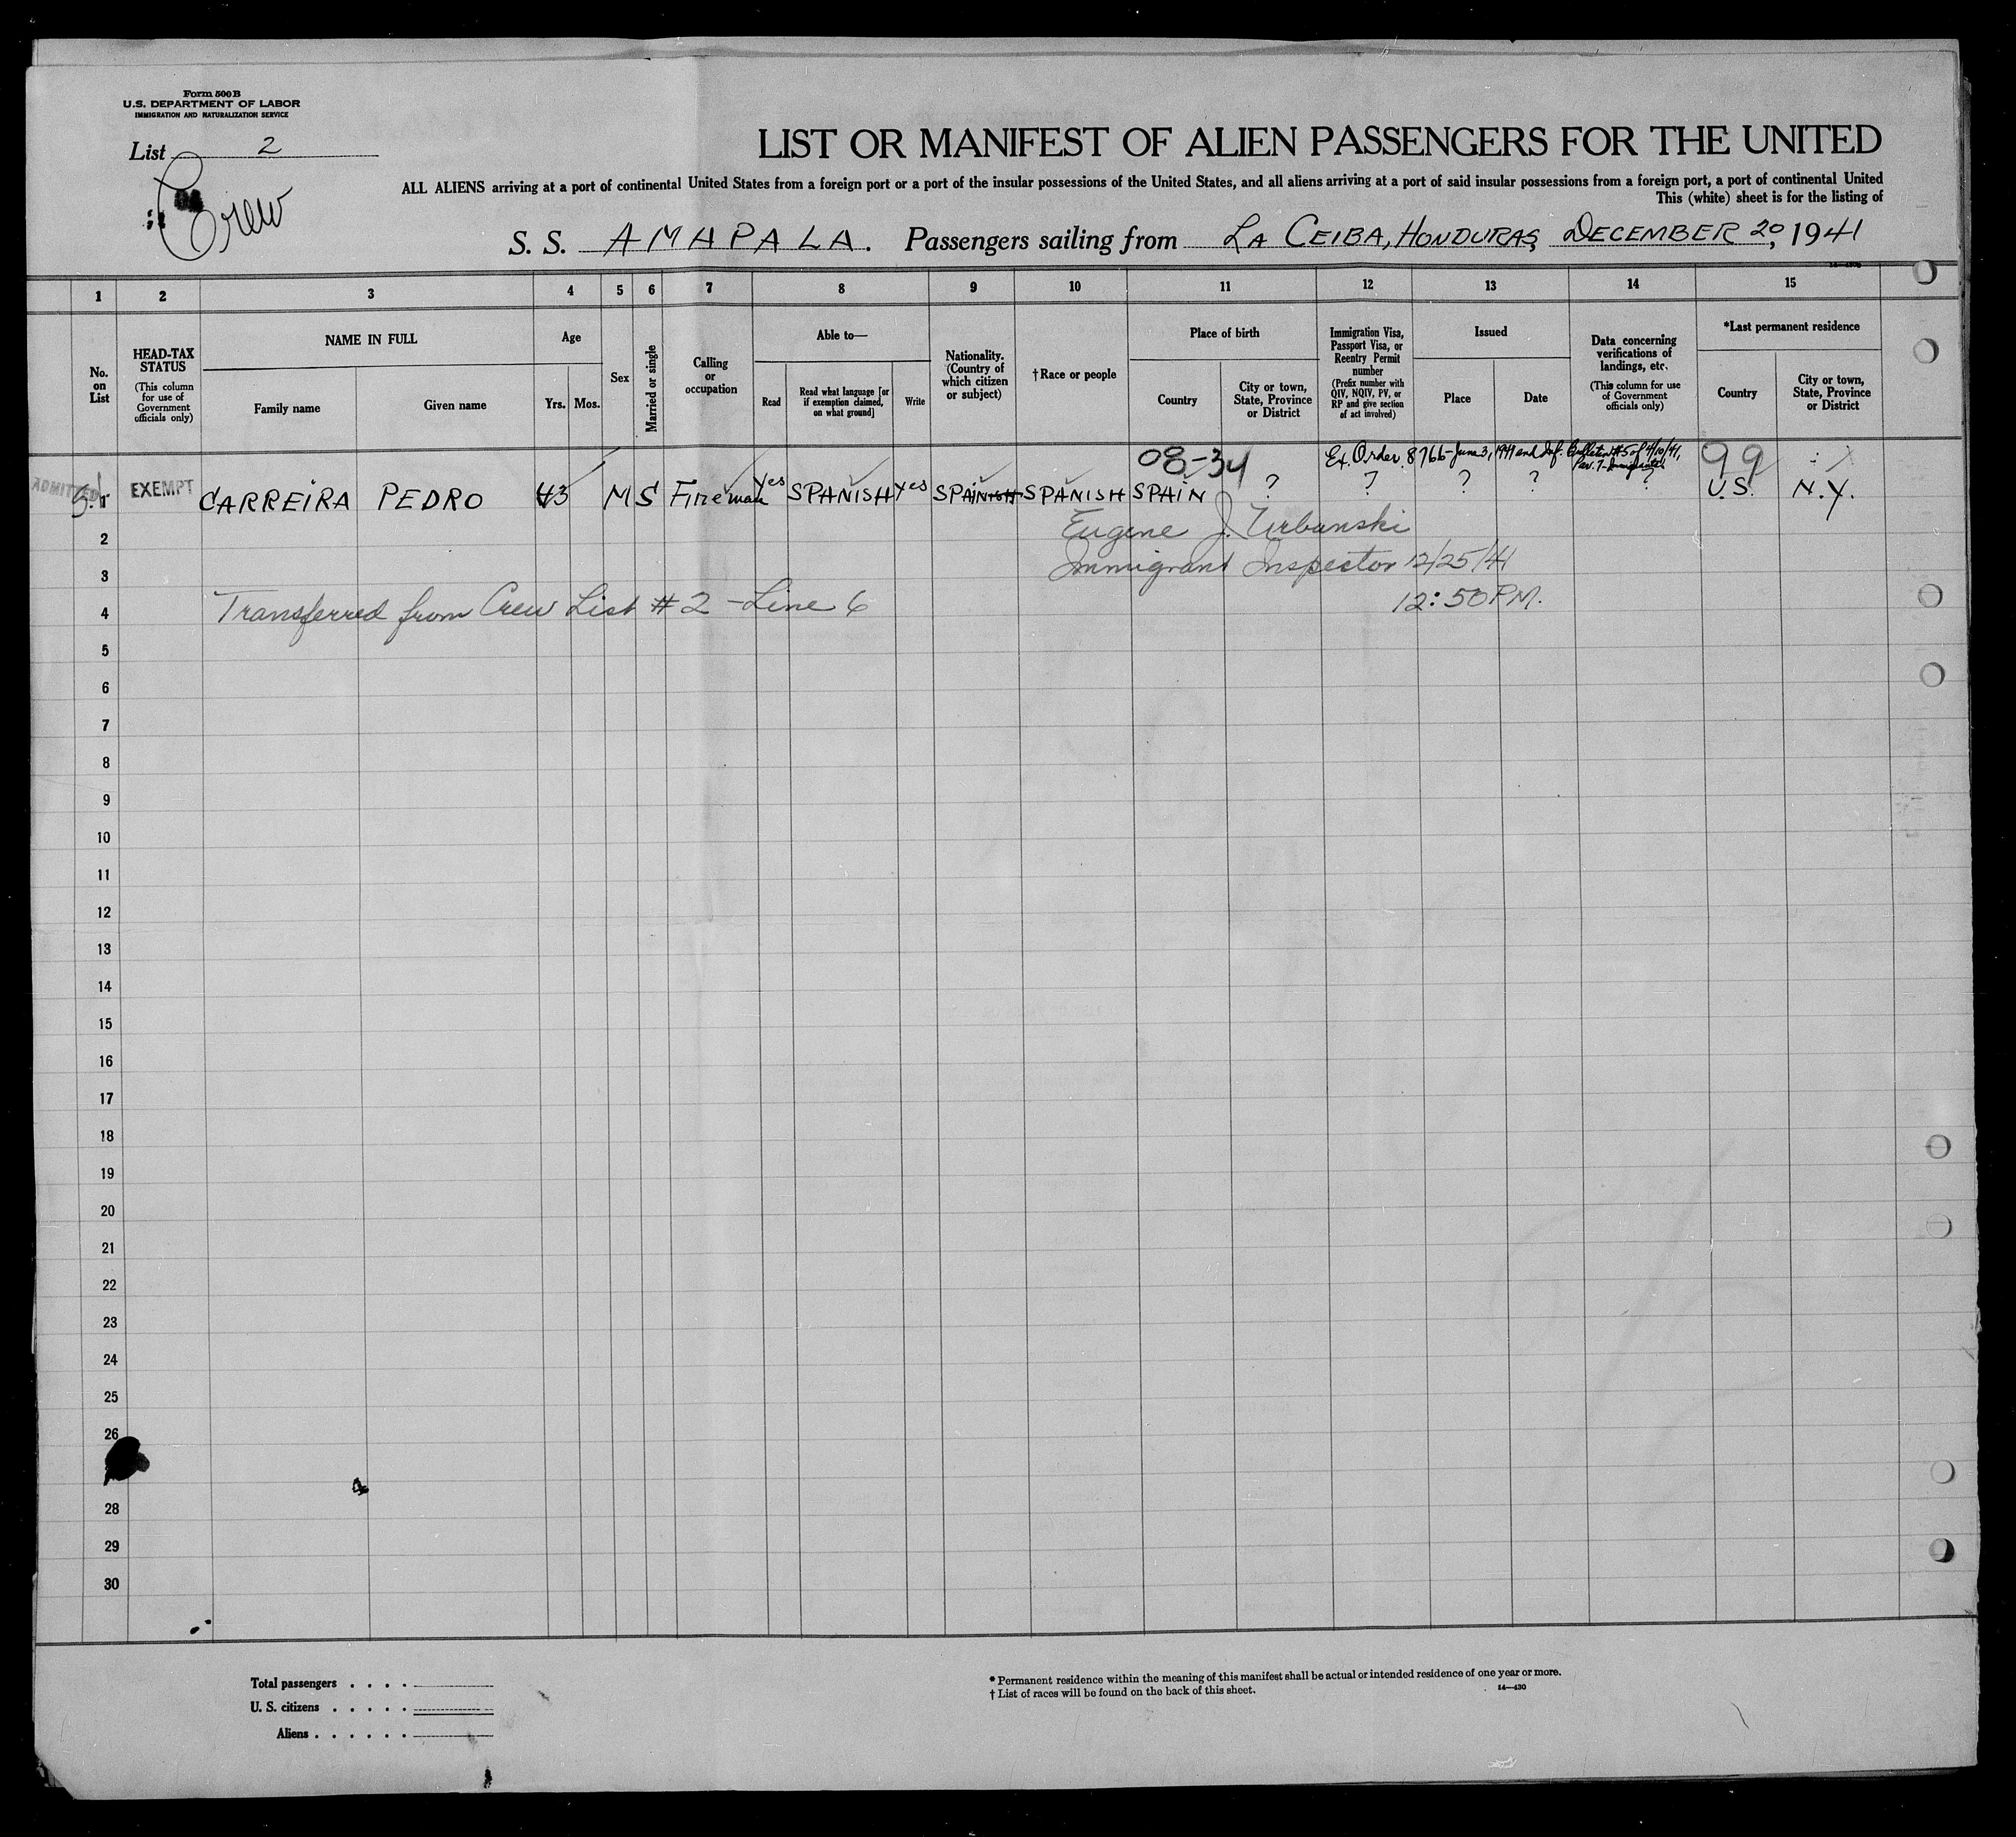 Form 500B
U.S. DEPARTMENT OF LABOR
IMMIGRATION AND NATURALIZATION SERVICE
List 2
Crew
LIST OR MANIFEST OF ALIEN PASSENGERS FOR THE UNITED
ALL ALIENS arriving at a port of continental United States from a foreign port or a port of the insular possessions of the United States, and all aliens arriving at a port of said insular possessions from a foreign port, a port of continental United
This (white) sheet is for the listing of
S. S. AMAPALA. Passengers sailing from LA CEIBA, HONDURAS, DECEMBER 20, 1941
1 2 3 4 5 6 7 8 9 10 11 12 13 14 15
No. on List
HEAD-TAX STATUS (This column for use of Government officials only)
NAME IN FULL
Family name Given name
Age
Yrs. Mos.
Sex
Married or single
Calling or occupation
Able to—
Read
Read what language [or if exemption claimed, on what ground]
Write
Nationality. (Country of which citizen or subject)
†Race or people
Place of birth
Country
City or town, State, Province or District
Immigration Visa, Passport Visa, or Reentry Permit number (Prefix number with QIV, NQIV, PV, or RP and give section of act involved)
Issued
Place Date
Data concerning verifications of landings, etc. (This column for use of Government officials only)
*Last permanent residence
Country
City or town, State, Province or District
08-34 Ex. Order 8766-June 3, 1941 and Inf. Bulletin #5 of 4/10/41, 99
ADMITTED EXEMPT CARREIRA PEDRO 43 M S Fireman Yes SPANISH Yes SPAINISH SPANISH SPAIN ? ? ? ? ? U.S. N.Y.
Eugene J. Urbanski
Immigrant Inspector 12/25/41
12:50 PM.
Transferred from Crew List #2 - Line 6
2
3
4
5
6
7
8
9
10
11
12
13
14
15
16
17
18
19
20
21
22
23
24
25
26
28
29
30
4
Total passengers . . . .
U. S. citizens . . . . .
Aliens . . . . . .
* Permanent residence within the meaning of this manifest shall be actual or intended residence of one year or more.
† List of races will be found on the back of this sheet.
14—430